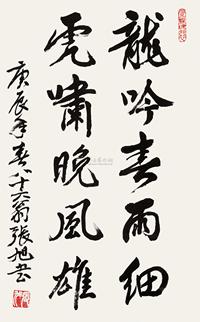 龍吟春雨細
虎嘯晚風雄
庚辰年春八十六翁張旭书